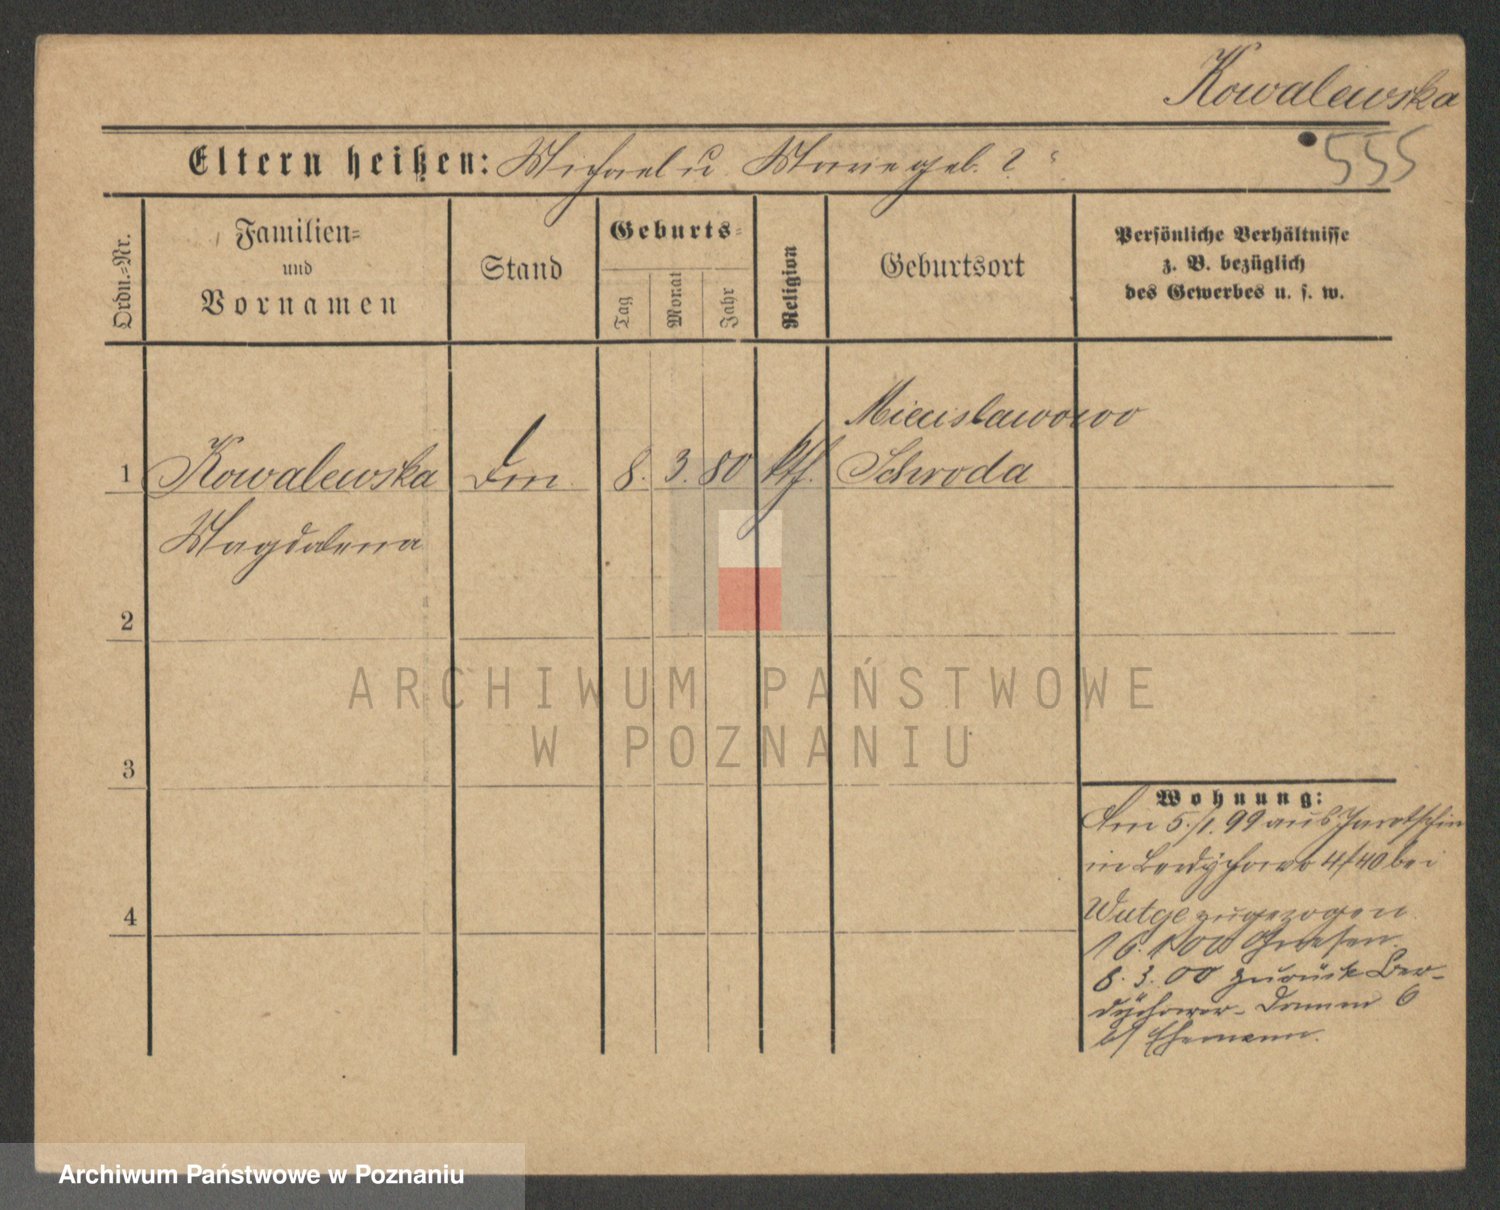 Kowalewska
555
Eltern heißen: Michael u Marie geb. ?
Ordn.=Nr.
Familien=
und
Vornamen
Stand
Geburts=
Tag
Monat
Jahr
Religion
Geburtsort
Persönliche Verhältnisse
z. B. bezüglich
des Gewerbes u. s. w.
Miecislawowo
1 Kowalewska 8. 3. 80 kth. Schroda
Magdalena
2
3
4
Wohnung:
Am 5./1. 99 aus Jarotschin
in Berdychowo 4/40 bei
Wutge zugezogen
Gnesen
8. 3. 00 zurück Ber-
dychower-Damm 6
b/ Ehemann.
ARCHIWUM PAŃSTWOWE
W POZNANIU
Archiwum Państwowe w Poznaniu